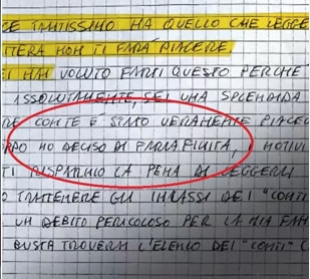 CE TANTISSIMO HA QUELLO CHE LEGGE
TTERA NON TI FARÀ PIACERE.
EI HAI VOLUTO FARTI QUESTO PERCHE
ISSOLUTAMENTE, SEI UNA SPLENDIDA
RE CON TE È STATO VERAMENTE PIACE
HO DECISO DI FARLA FINITA, I MOTIVI
TI RISPARMIO LA PENA DI LEGGERLI
O TRATTENERE GLI INCASSI DEI "CONTI
UN DEBITO PERICOLOSO PER LA MIA FAM
BUSTA TROVERAI L'ELENCO DEI "CONTI" C